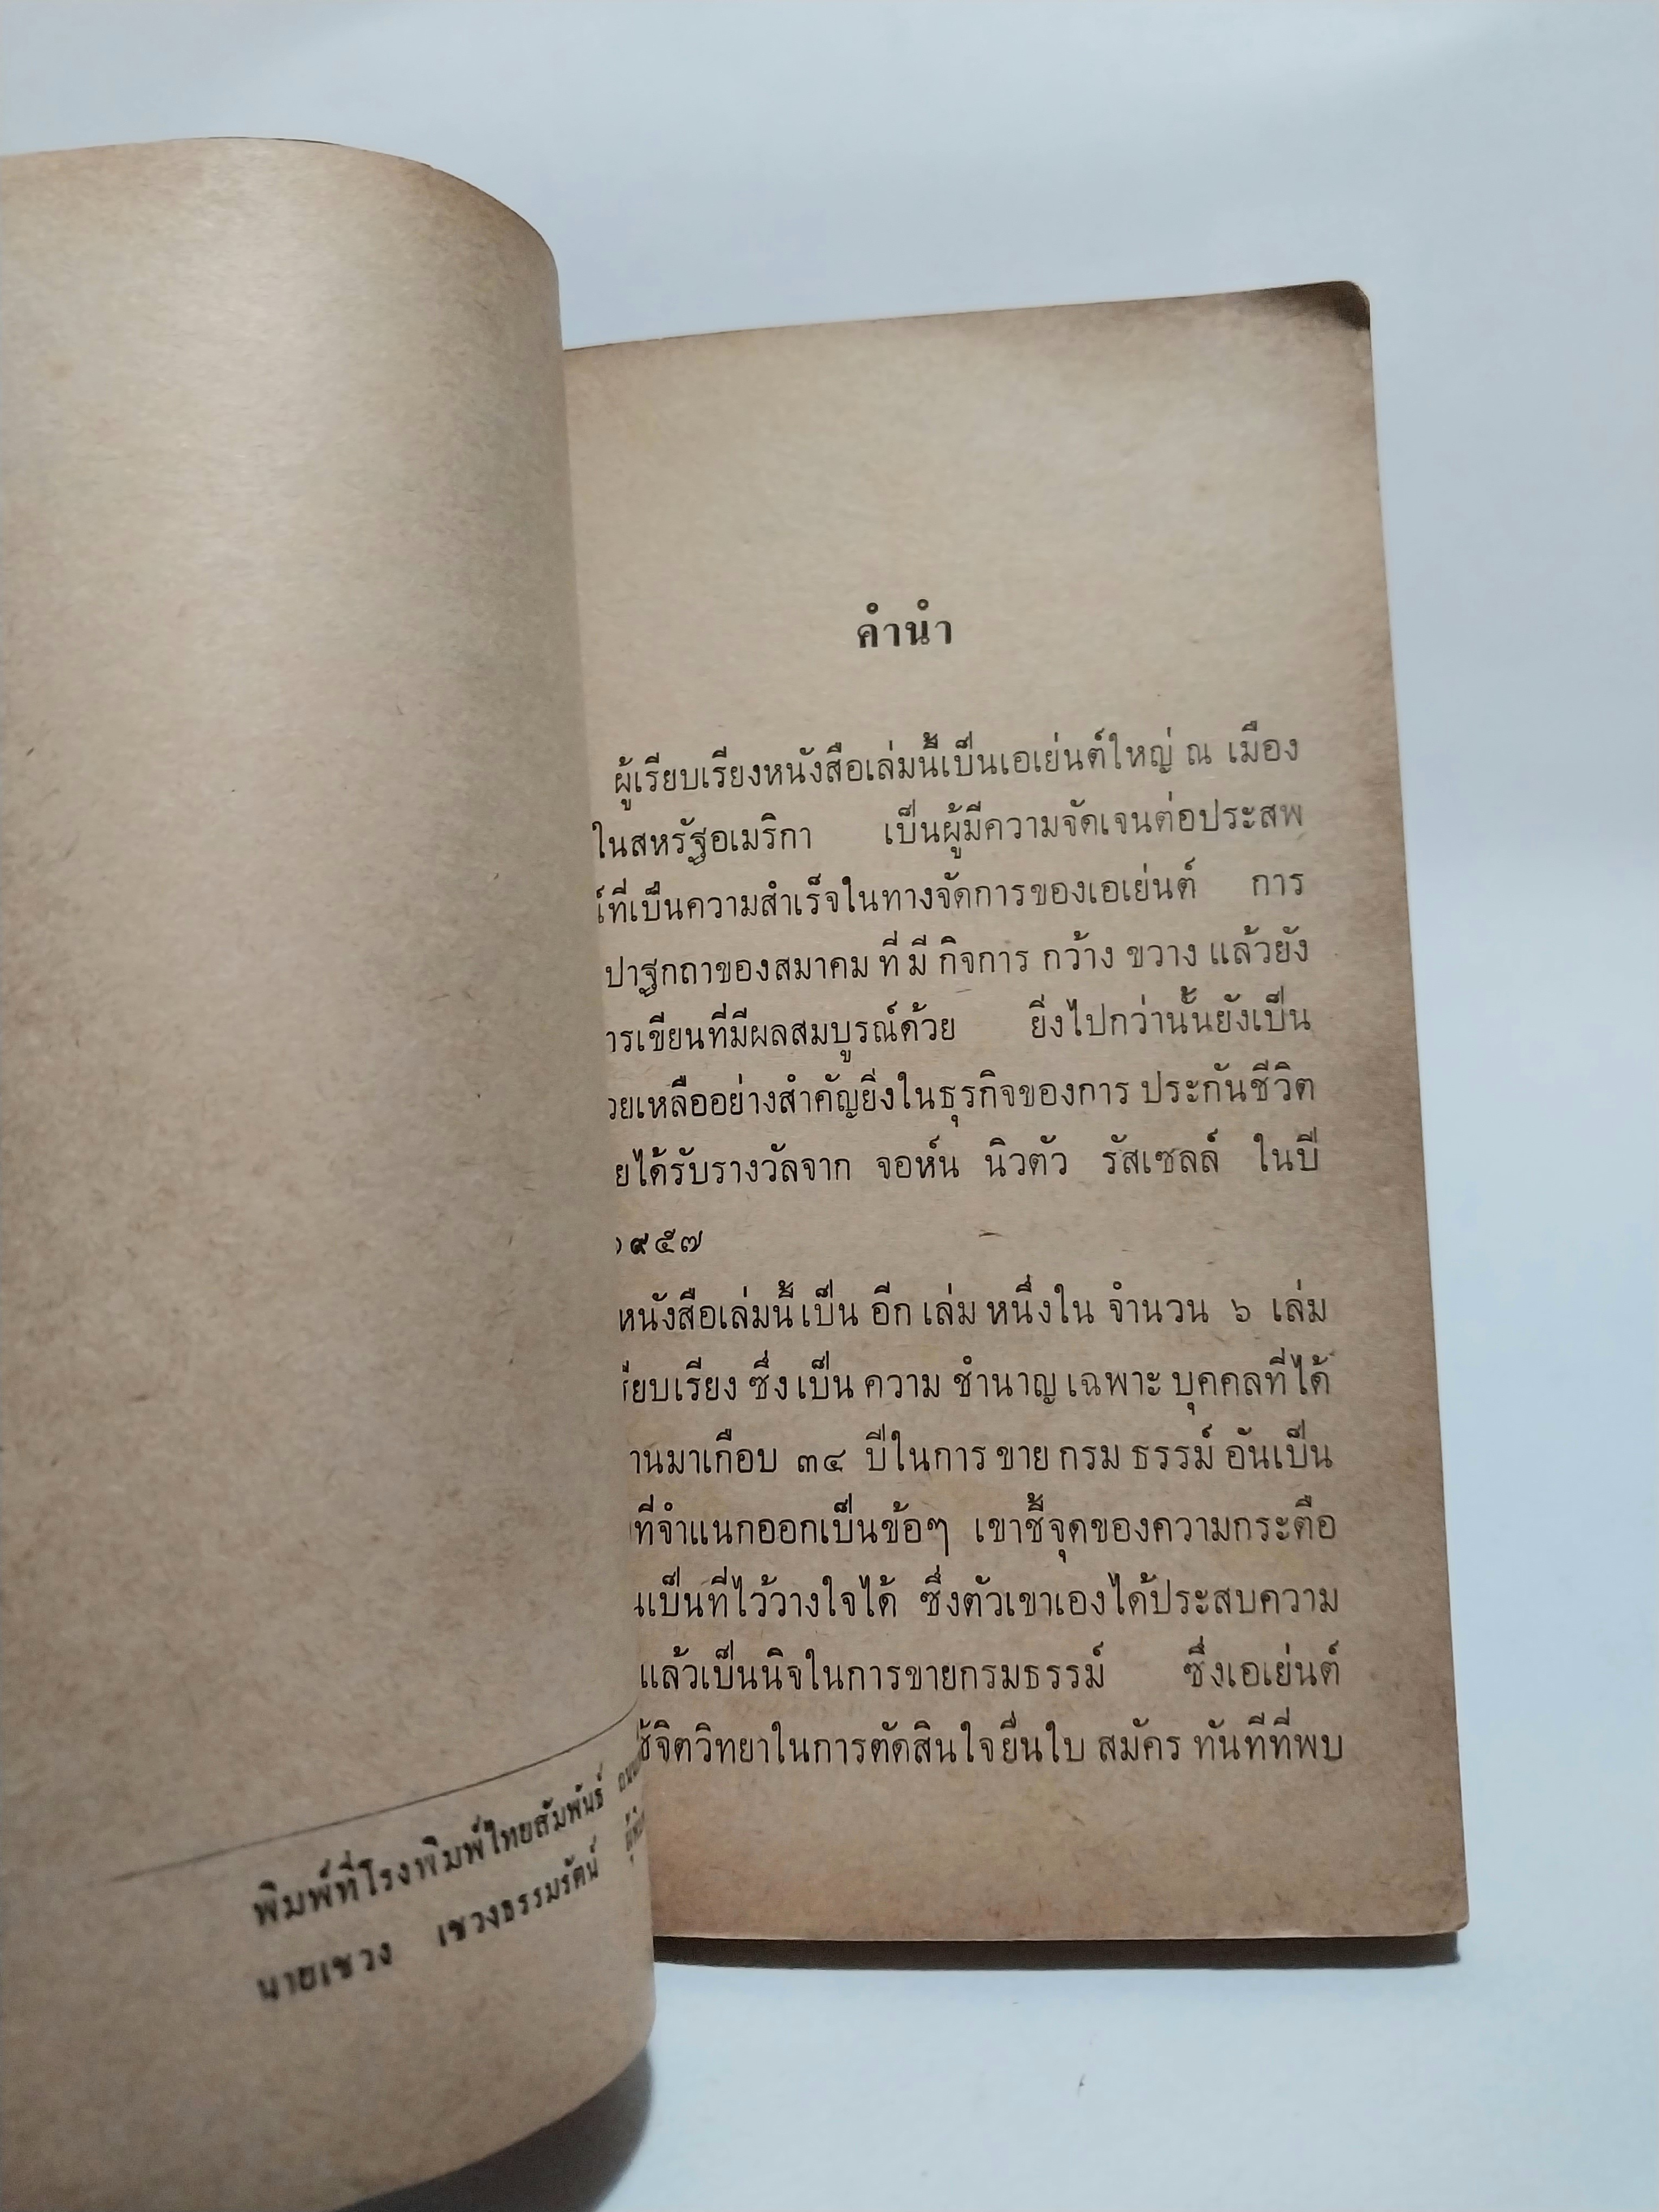 พิมพ์ที่โรงพิมพ์ไทยสัมพันธ์
นายเชวง เชวงธรรมรัตน์
คำนำ
ผู้เรียบเรียงหนังสือเล่มนี้เป็นเอเย่นต์ใหญ่ ณ เมือง
ในสหรัฐอเมริกา เป็นผู้มีความจัดเจนต่อประสพ
ที่เป็นความสำเร็จในทางจัดการของเอเย่นต์ การ
ปาฐกถาของสมาคม ที่ มี กิจการ กว้าง ขวาง แล้วยัง
ารเขียนที่มีผลสมบูรณ์ด้วย ยิ่งไปกว่านั้นยังเป็น
วยเหลืออย่างสำคัญยิ่งในธุรกิจของการ ประกันชีวิต
ยได้รับรางวัลจาก จอห์น นิวตัว รัสเซลล์ ในปี
๙๕๗
หนังสือเล่มนี้ เป็น อีก เล่ม หนึ่งใน จำนวน ๖ เล่ม
รียบเรียง ซึ่ง เป็น ความ ชำนาญ เฉพาะ บุคคลที่ได้
านมาเกือบ ๓๔ ปีในการ ขาย กรม ธรรม์ อันเป็น
ที่จำแนกออกเป็นข้อๆ เขาชี้จุดของความกระตือ
เป็นที่ไว้วางใจได้ ซึ่งตัวเขาเองได้ประสบความ
แล้วเป็นนิจในการขายกรมธรรม์ ซึ่งเอเย่นต์
ช้จิตวิทยาในการตัดสินใจยื่นใบ สมัคร ทันทีที่พบ